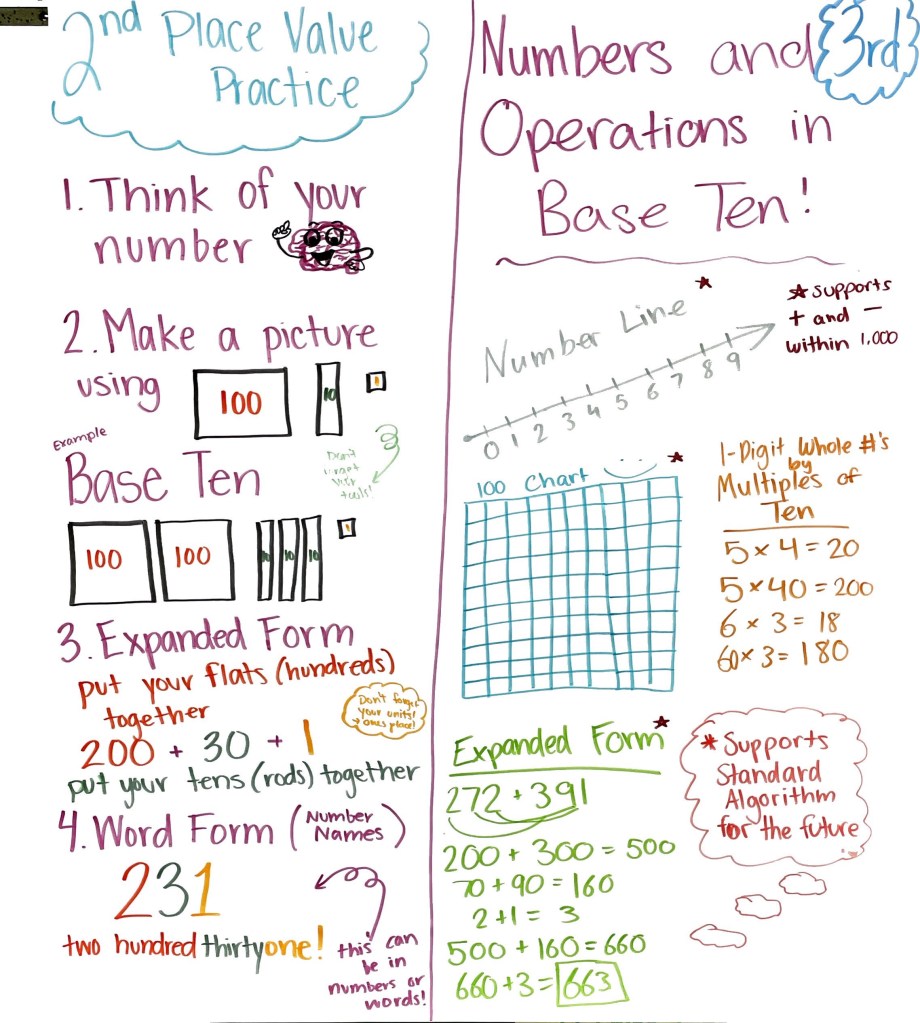 2nd Place Value
Practice
1. Think of your
number
2. Make a picture
using
100
10
1
Example
Base Ten
Don't
forget
your
tools!
100
100
10
10
10
1
3. Expanded Form
put your flats (hundreds)
together
200 + 30 + 1
Don't forget
your units!
→ ones place!
put your tens (rods) together
4. Word Form (Number
Names)
231
two hundred thirtyone!
this can
be in
numbers or
words!
Numbers and 3rd
Operations in
Base Ten!
Number Line ★
0 1 2 3 4 5 6 7 8 9
★ supports
+ and −
within 1,000
100 Chart ★
1-Digit Whole #'s
by
Multiples of
Ten
5 × 4 = 20
5 × 40 = 200
6 × 3 = 18
60 × 3 = 180
Expanded Form ★
272 + 391
200 + 300 = 500
70 + 90 = 160
2 + 1 = 3
500 + 160 = 660
660 + 3 = 663
★ Supports
Standard
Algorithm
for the future